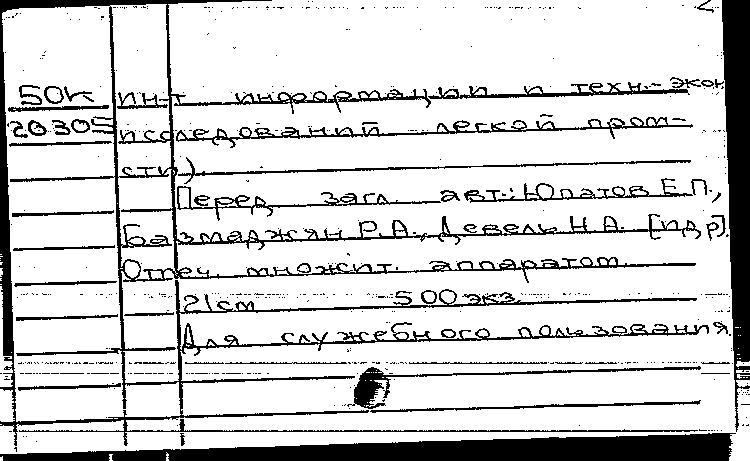 2
50к ин-т информации и техн.-экон
20305 исследований легкой пром-
сти).
Перед загл. авт.: Юпатов Е.П.,
Базмаджян Р.А., Девель Н.А. [и др].
Отпеч. множит. аппаратом.
21см 500 экз.
Для служебного пользования